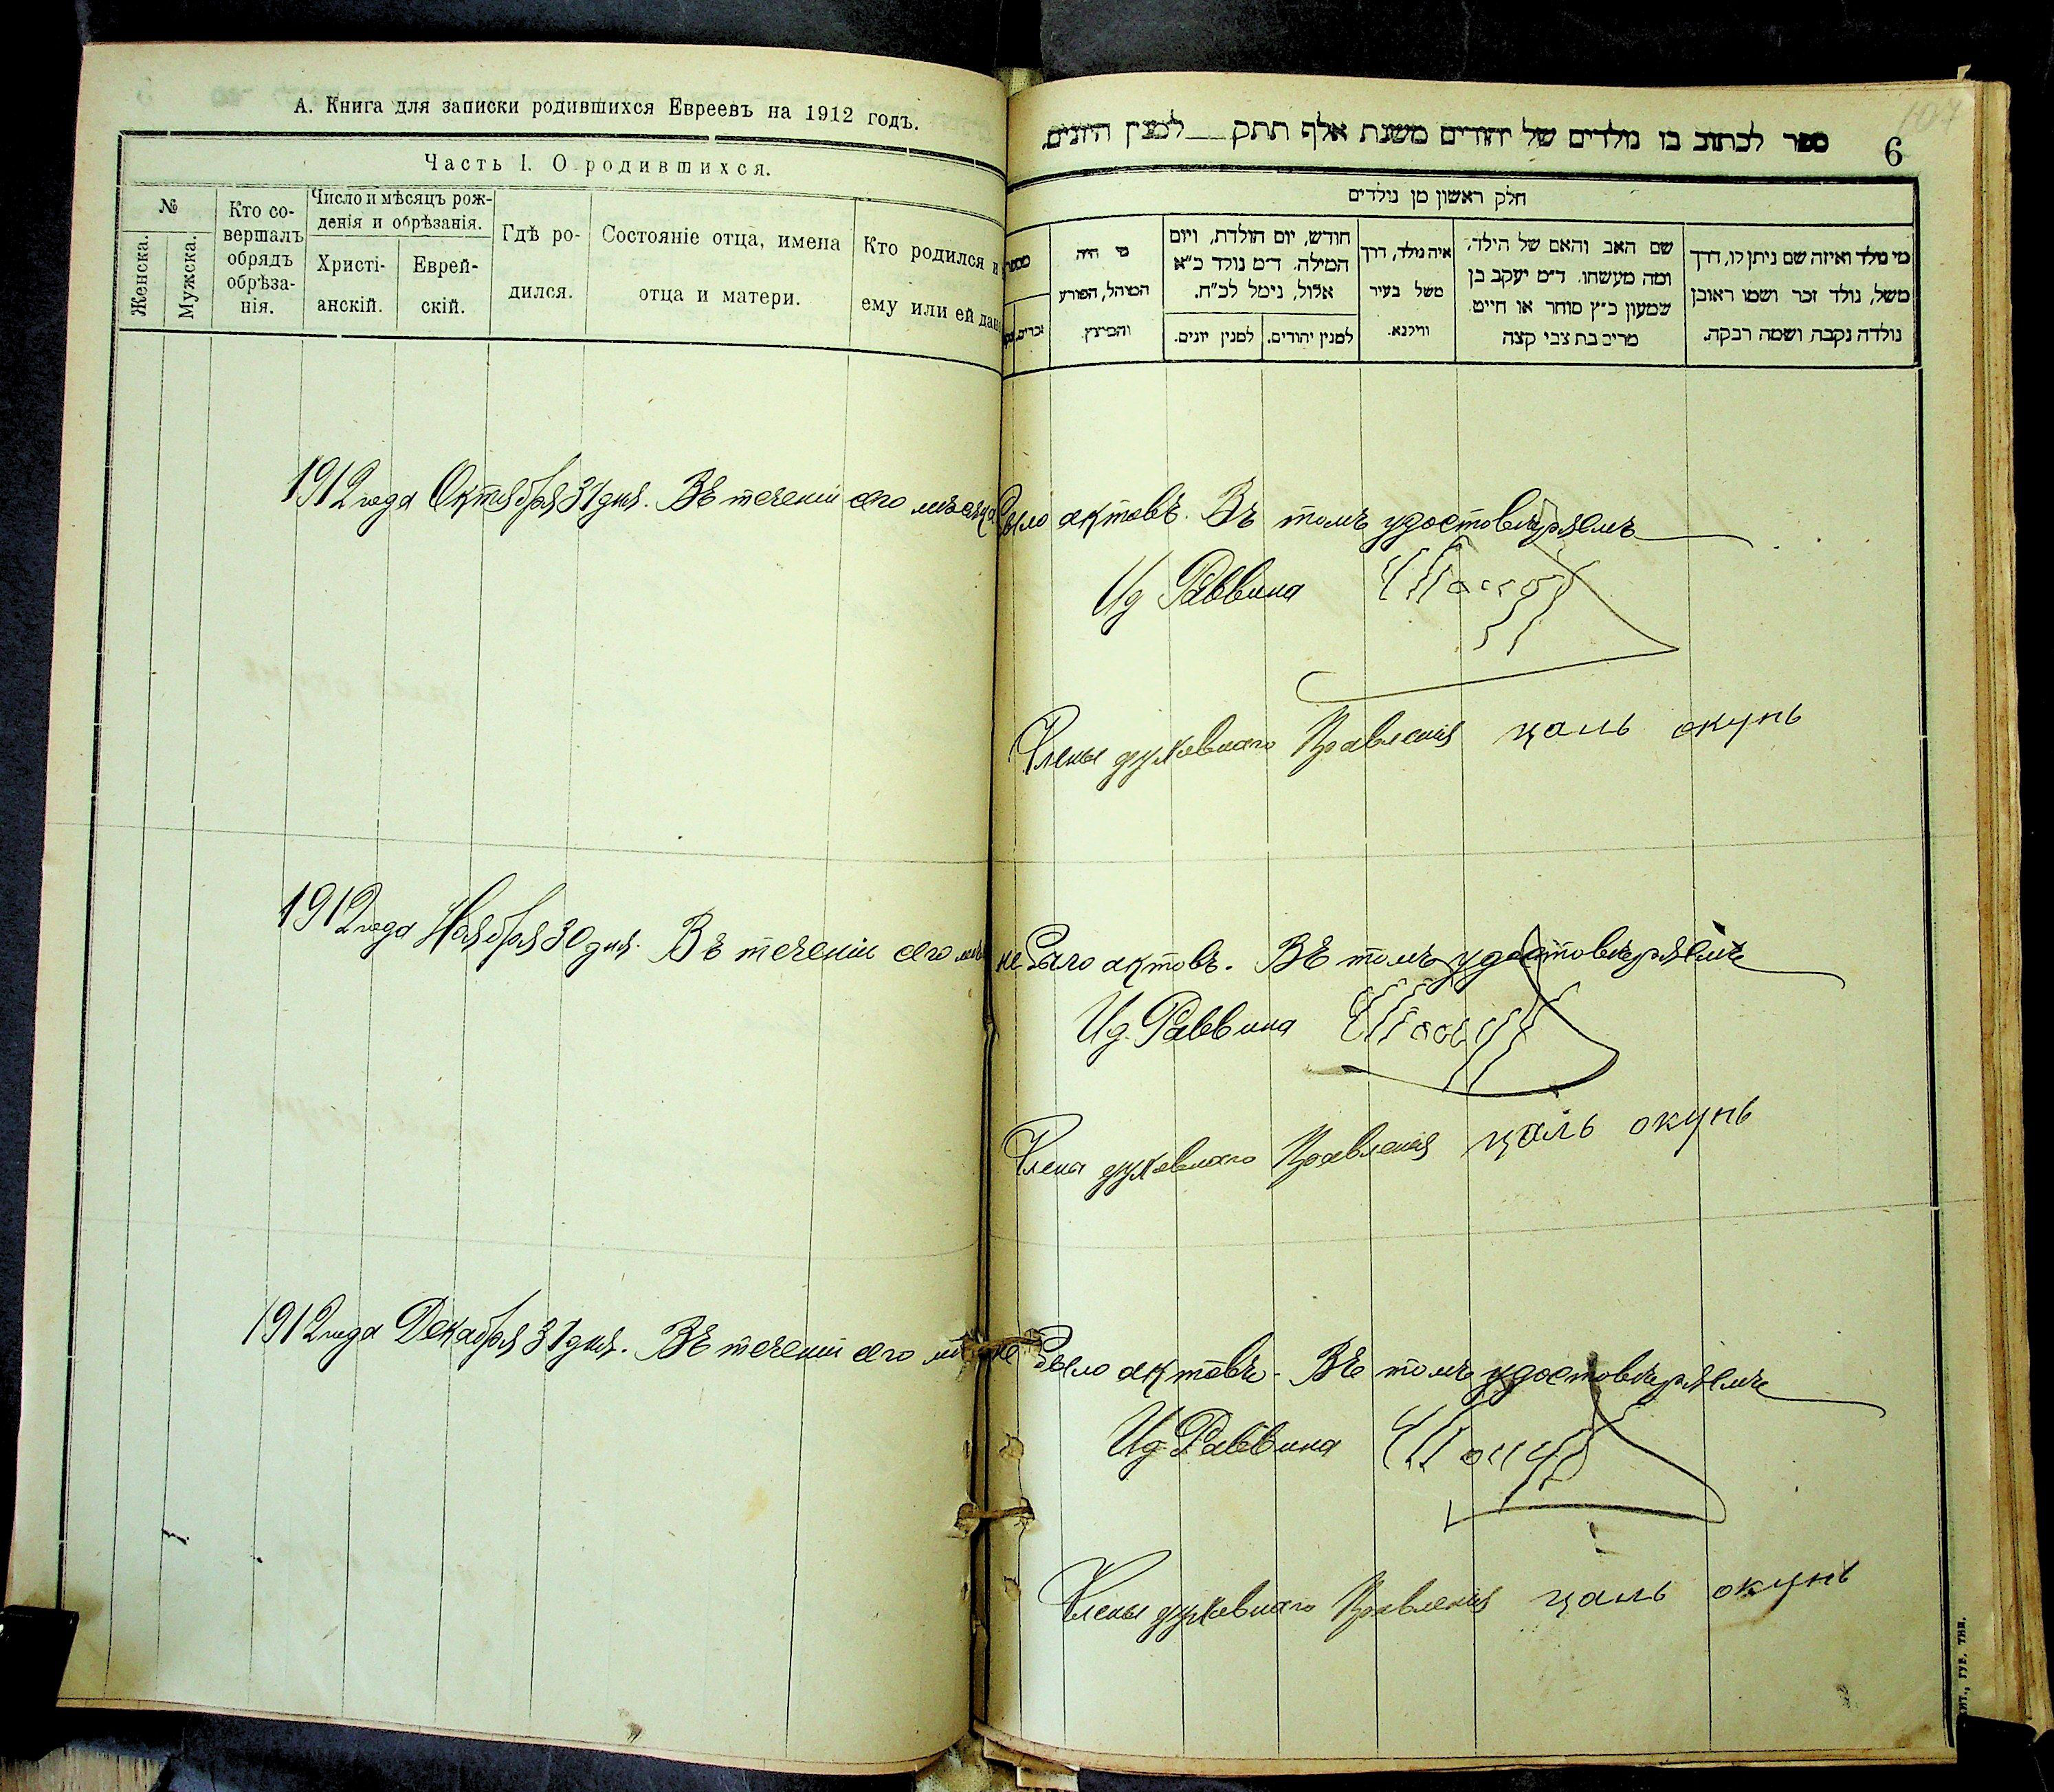 А. Книга для записки родившихся Евреевъ на 1912 годъ.
Часть I. О родившихся.
№
Женска.
Мужска.
Кто со-
вершалъ
обрядъ
обрѣза-
нія.
Число и мѣсяцъ рож-
денія и обрѣзанія.
Христі-
анскій.
Еврей-
скій.
Гдѣ ро-
дился.
Состояніе отца, имена
отца и матери.
Кто родился и
ему или ей дано
1912 года Октября 31 дня. Въ теченіи сего мѣсяца
1912 года Ноября 30 дня. Въ теченіи сего
1912 года Декабря 31 дня. Въ теченіи сего
ספר לכתוב בו נולדים של יהודים משנת אלף תתק למנין היונים.
6
107
חלק ראשון מן נולדים
מי היה
המוהל, הפורע
והמוצץ.
חודש, יום הולדת, ויום
המילה. ד״מ נולד כ״א
אלול, נימל לכ״ח.
למנין יהודים.
למנין יונים.
איה נולד, דרך
משל בעיר
ווילנא.
שם האב והאם של הילד,
ומה מעשהו. ד״מ יעקב בן
שמעון כ״ץ סוחר או חייט
מרים בת צבי קצה
מי נולד ואיזה שם ניתן לו, דרך
משל, נולד זכר ושמו ראובן
נולדה נקבה ושמה רבקה.
было актовъ. Въ томъ удостовѣряемъ
И д Раввина
Члены духовнаго Правленія цаль окунь
не было актовъ. Въ томъ удостовѣряемъ
И д. Раввина
Члена духовнаго Правленія цаль окунь
не было актовъ. Въ томъ удостовѣряемъ
И д. Раввина
Члены духовнаго Правленія цаль окунь
ГУБ. ТИП.